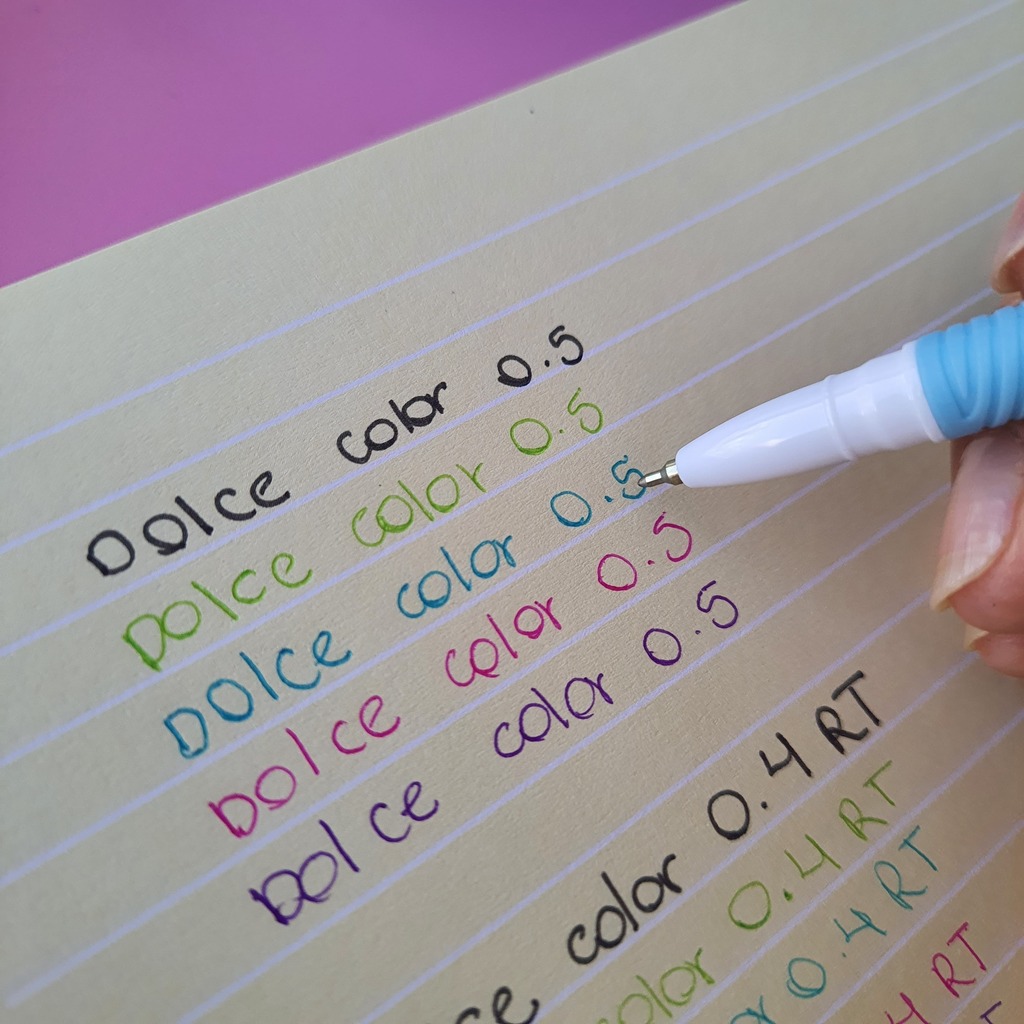 Dolce color 0.5
Dolce color 0.5
Dolce color 0.5
Dolce color 0.5
Dolce color 0.5
ce color 0.4 RT
color 0.4 RT
or 0.4 RT
4 RT